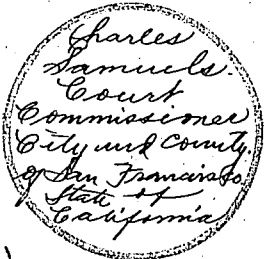 Charles
Samuels.
Court
Commissioner
City and County.
of San Francisco
State of
California